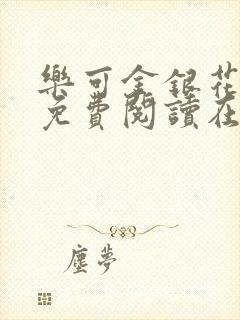 樂可金銀花
免費閱讀在
塵夢